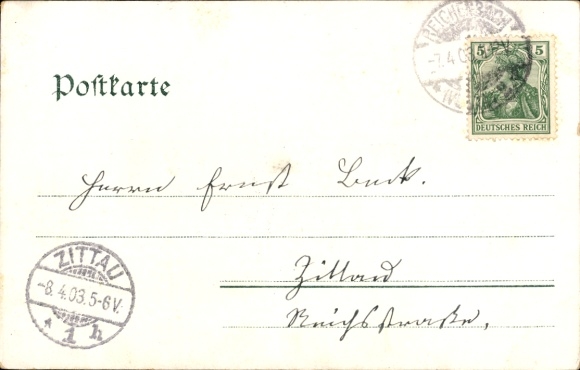 REICHENBACH
-7.4.03.
5 5
DEUTSCHES REICH
Postkarte
Herrn Ernst Beck.
ZITTAU
-8.4.03.5-6V.
* 1 h
Zittau
Reichsstraße,